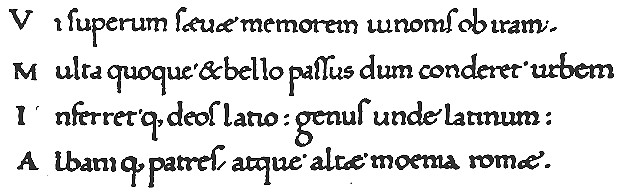 V i ſuperum ſæuæ memorem iunoniſ ob iram.
M ulta quoque & bello paſſus dum conderet urbem
I nferret q, deoſ latio: genuſ unde latinum:
A lbani q, patreſ, atque altæ moenia romæ.